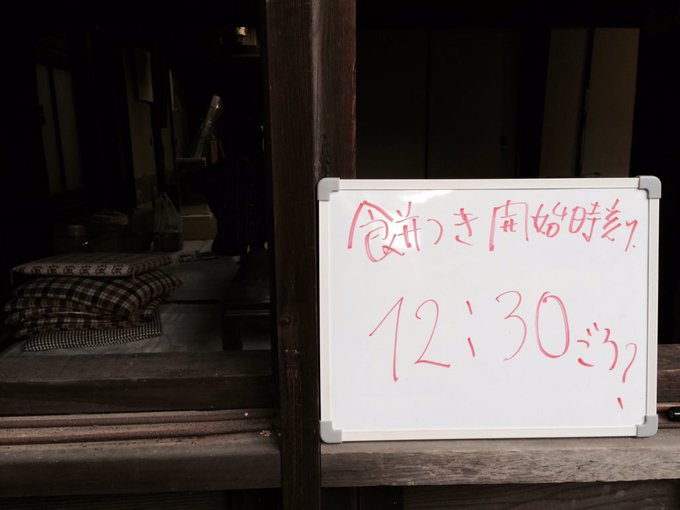 餅つき開始時刻
12:30ごろ?